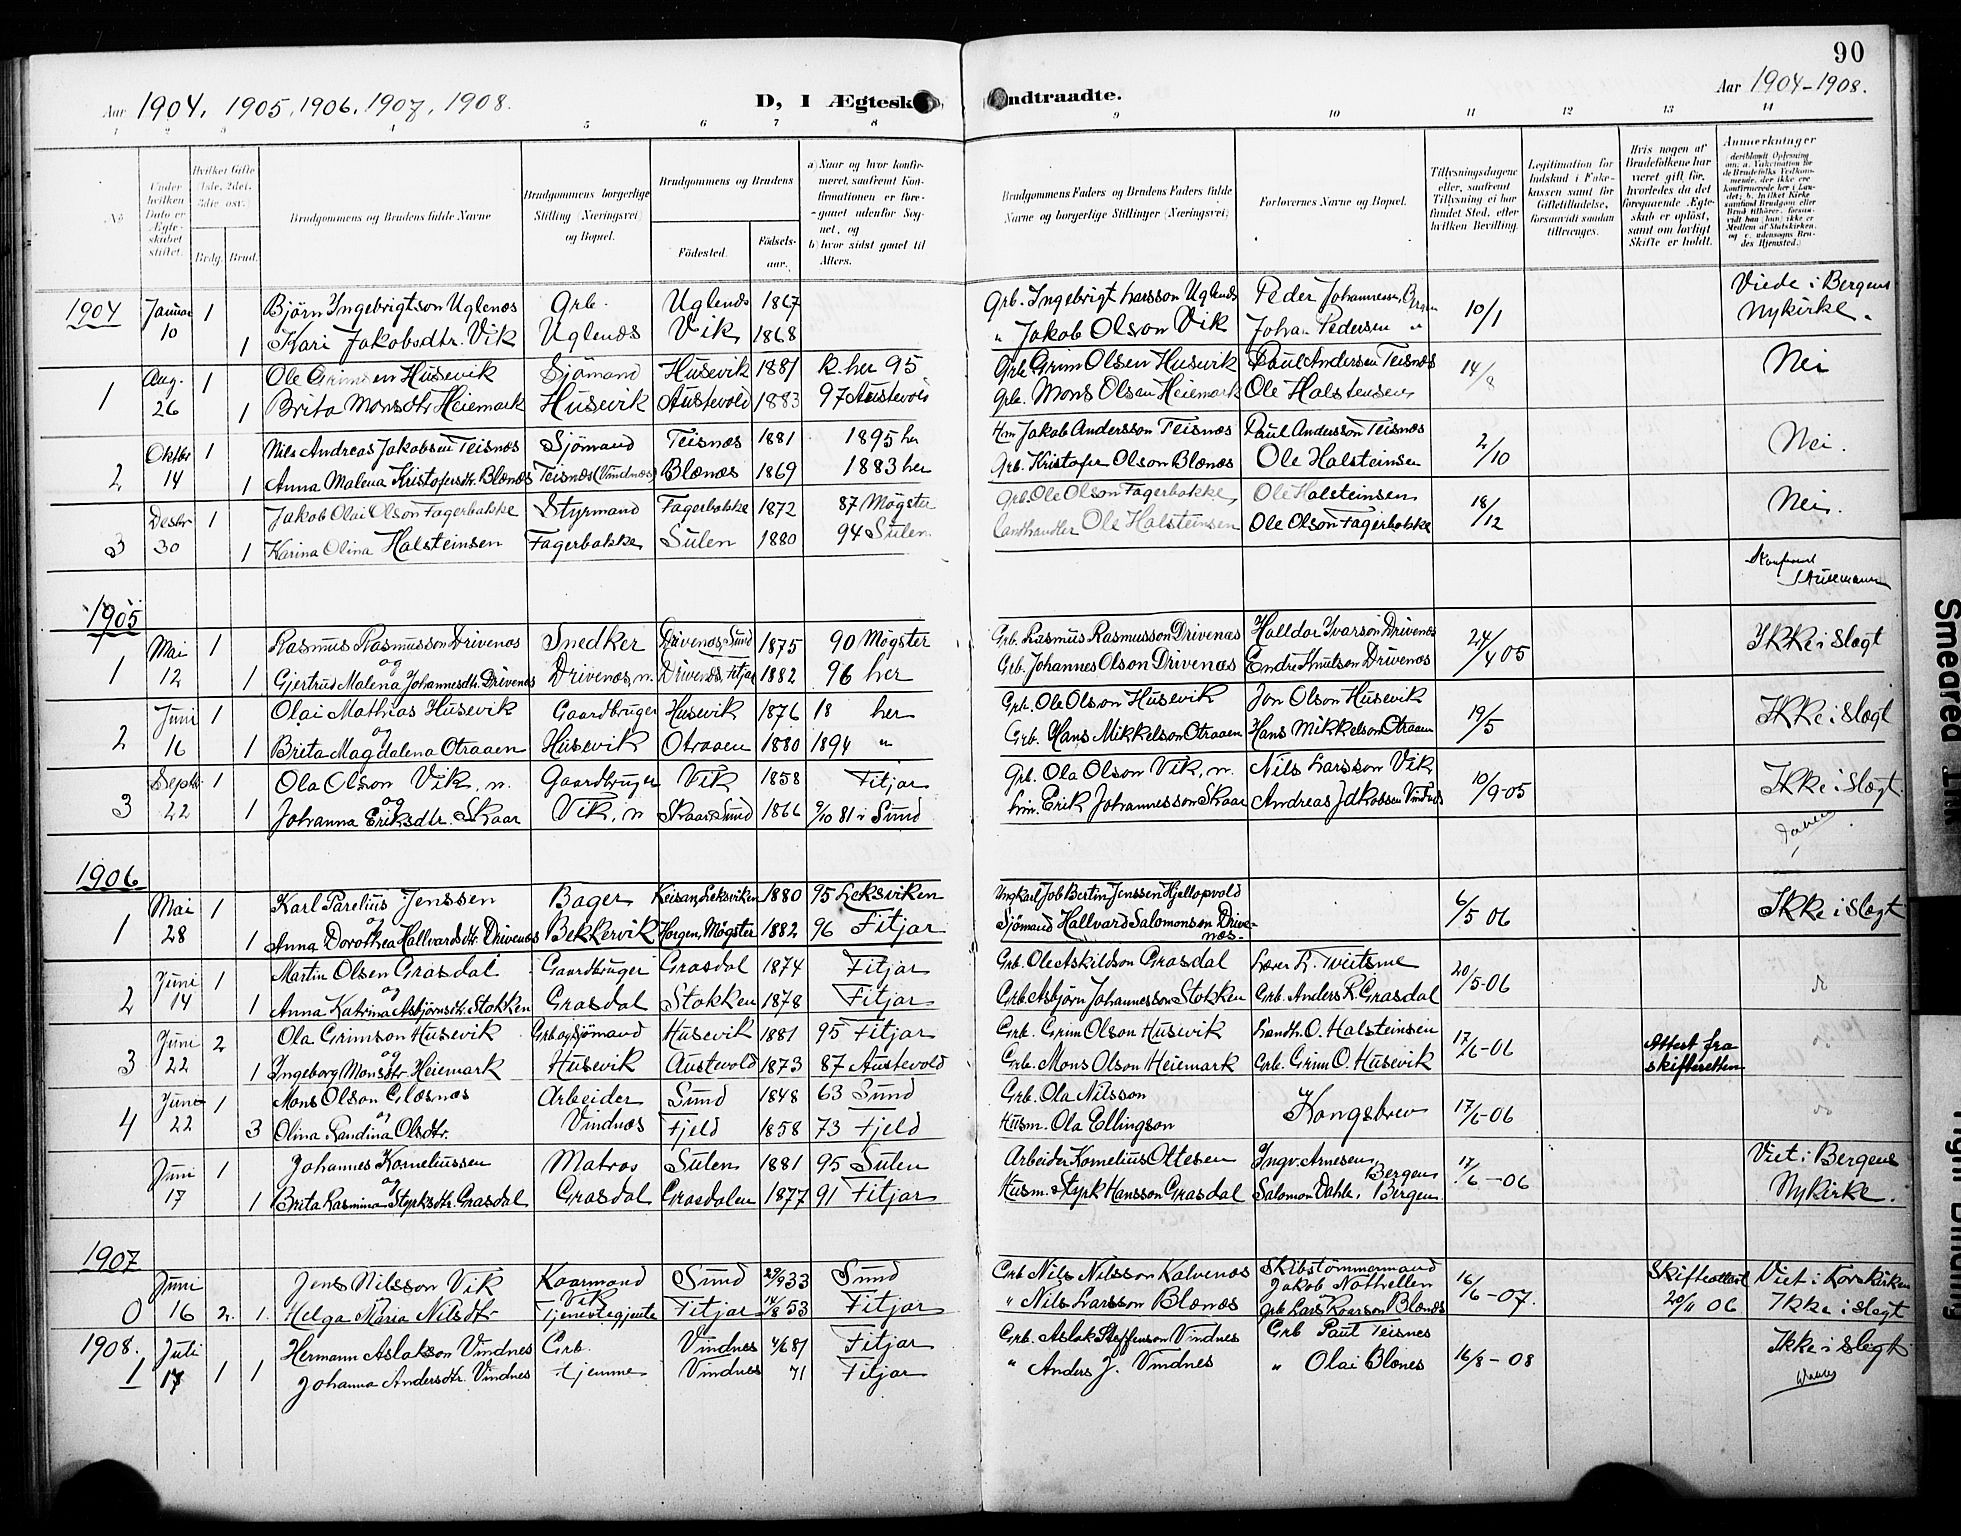 90
Aar 1904, 1905, 1906, 1907, 1908.
D, I Ægtesk ndtraadte.
Aar 1904-1908.
1 2 3 4 5 6 7 8 9 10 11 12 13 14
No
Under hvilken Dato er Ægteskabet stiftet.
Hvilket Gifte (1ste, 2det, 3die osv.)
Brdg. Brud.
Brudgommens og Brudens fulde Navne
Brudgommens borgerlige Stilling (Næringsvei) og Bopæl.
Brudgommens og Brudens
Fødested. Fødselsaar.
a) Naar og hvor konfirmeret, saafremt Konfirmationen er foregaaet udenfor Sognet, og
b) hvor sidst gaaet til Alters.
Brudgommens Faders og Brudens Faders fulde Navne og borgerlige Stillinger (Næringsvei).
Forlovernes Navne og Bopæl.
Tillysningsdagene eller, saafremt Tillysning ei har fundet Sted, efter hvilken Bevilling.
Legitimation for Indskud i Enkekassen samt for Giftetilladelse, forsaavidt saadan tiltrænges.
Hvis nogen af Brudefolkene har været gift før, hvorledes da det foregaaende Ægteskab er opløst, samt om lovligt Skifte er holdt.
Anmerkninger
1904 Januar 1 Bjørn Ingebrigtson Uglenes Grb. Uglenes 1867 Grb. Ingebrigt Larsson Uglenes Peder Johannessen, Bergen 10/1 Viede i Bergens
10 1 Kari Jakobsdtr. Vik Uglenes Vik 1868 " Jakob Olson Vik Johan Pedersen " Nykirke.
Aug. 1 Ole Grimsen Husevik Sjömand Husevik 1881 k. her 95 Grb. Grim Olsen Husevik Paul Andersen Teisnæs 14/8 Nei
1 26 1 Brita Monsdtr Heiemark Husevik Austevold 1883 97 Austevold Grb. Mons Olsen Heiemark Ole Halstensen
Oktbr 1 Nils Andreas Jakobsen Teisnæs Sjömand Teisnæs 1881 1895 her Hm Jakob Andersson Teisnæs Paul Andersson Teisnæs 2/10 Nei.
2 14 1 Anna Malena Kristofersdtr. Blænæs Teisnæs (Vindnæs) Blænæs 1869 1883 her Grb. Kristofer Olson Blænæs Ole Halsteinsen
Desbr 1 Jakob Olai Olson Fagerbakke Styrmand Fagerbakke 1872 87 Møgster Grb. Ole Olson Fagerbakke, Ole Halsteinsen 18/12 Nei.
3 30 1 Karina Olina Halsteinsen Fagerbakke Sulen 1880 94 Sulen Landhandler Ole Halsteinsen Ole Olson Fagerbakke
1905
Mai 1 Rasmus Rasmusson Drivenæs Snedker Drivenæs Sund 1875 90 Møgster Grb. Rasmus Rasmusson Drivenæs Halldor Ivarson Drivenæs 24/4 05 Ikke i Slægt
og
1 12 1 Gjertrud Malena Johannesdtr. Drivenæs Drivenæs, n. Drivenæs, Fitjar 1882 96 her Grb. Johannes Olson Drivenæs Endre Knutson Drivenæs
Juni 1 Olai Mathias Husevik Gaardbruger Husevik 1876 18 her Grb. Ole Olson Husevik Jon Olson Husevik 19/5 Ikke i Slægt
og
2 16 1 Brita Magdalena Otraaen Husevik Otraaen 1880 1894 " Grb. Hans Mikkelson Otraaen Hans Mikkelson Otraaen
Septbr 1 Ola Olson Vik, n. Gaardbruger Vik 1858 Fitjar Grb. Ola Olson Vik, n. Nils Larsson Vik 10/9-05 Ikke i Slægt
og
3 22 1 Johanna Eriksdtr. Skaar Vik, n Skaar Sund 1866 9/10 81 i Sund Hm. Erik Johannesson Skaar Andreas Jakobsen Vindnæs
1906
Mai 1 Karl Parelius Jenssen Bager Keisan, Leksviken 1880 95 Leksviken Ungkarl Job Bertin Jenssen Hjellopvold 6/5 06 Ikke i Slægt
og
1 28 1 Anna Dorothea Hallvardsdtr. Drivenæs Bekkervik Horgen, Møgster 1882 96 Fitjar Sjømand Hallvard Salomonsen Drivenæs
Juni 1 Martin Olsen Grasdal Gaardbruger Grasdal 1874 Fitjar Grb. Ole Askildson Grasdal Lærer L. Tveitsme 20/5-06
og
2 14 1 Anna Katrina Asbjørnsdtr. Stokken Grasdal Stokken 1878 Fitjar Grb. Asbjørn Johannesson Stokken Grb. Anders R. Grasdal do
Juni 2 Ola Grimson Husevik Grb. og sjømand Husevik 1881 95 Fitjar Grb. Grim Olson Husevik Landh. O. Halsteinsen 17/6-06 Attest fra
og
3 22 1 Ingeborg Monsdtr Heiemark Husevik Austevold 1873 87 Austevold Grb. Mons Olson Heiemark Grb. Grim O. Husevik skifteretten do
Juni 1 Mons Olson Glæsnæs Arbeider Sund 1848 63 Sund Grb. Ola Nilsson Kongsbrev 17/6-06 do
og
4 22 3 Olina Randina Olsdtr. Vindnæs Fjeld 1858 73 Fjeld Husm. Ola Ellingson
Juni 1 Johannes Korneliussen Matros Sulen 1881 95 Sulen Arbeider Kornelius Ottesen Ingv. Arnesen, Bergen 17/6-06 Viet i Bergens
og
17 1 Brita Rasmina Styrksdtr. Grasdal Grasdal Grasdalen 1877 91 Fitjar Husm. Styrk Hansson Grasdal Salomon Dahle, Bergen. Nykirke.
1907
Juni Jens Nilsson Vik Kaarmand Vik Sund 29/9 33 Sund Grb Nils Nilsson Kalvenæs Skibstømmermand Jakob Nathvellen 16/6-07. Skifteattest Viet i Korskirken
0 16 2. 1. Helga Maria Nilsdtr Tjenestegjente Fitjar 14/8 53 Fitjar " Nils Larsson Blænæs Grb Lars Kaarson Blænæs 20/11 06 Ikke i Slegt
1908. Juli Hermann Aslakson Vindnes Grb. Vindnes 4/6 81 Fitjar Grb. Aslak Steffenson Vindnes Grb Paul Teisnes 16/8-08 Ikke i Slegt
1 17 1 1 Johanna Andersdtr. Vindnes hjemme Vindnes 71 Fitjar " Anders J. Vindnes " Olai Blænes
Smeared Ink
Tight Binding